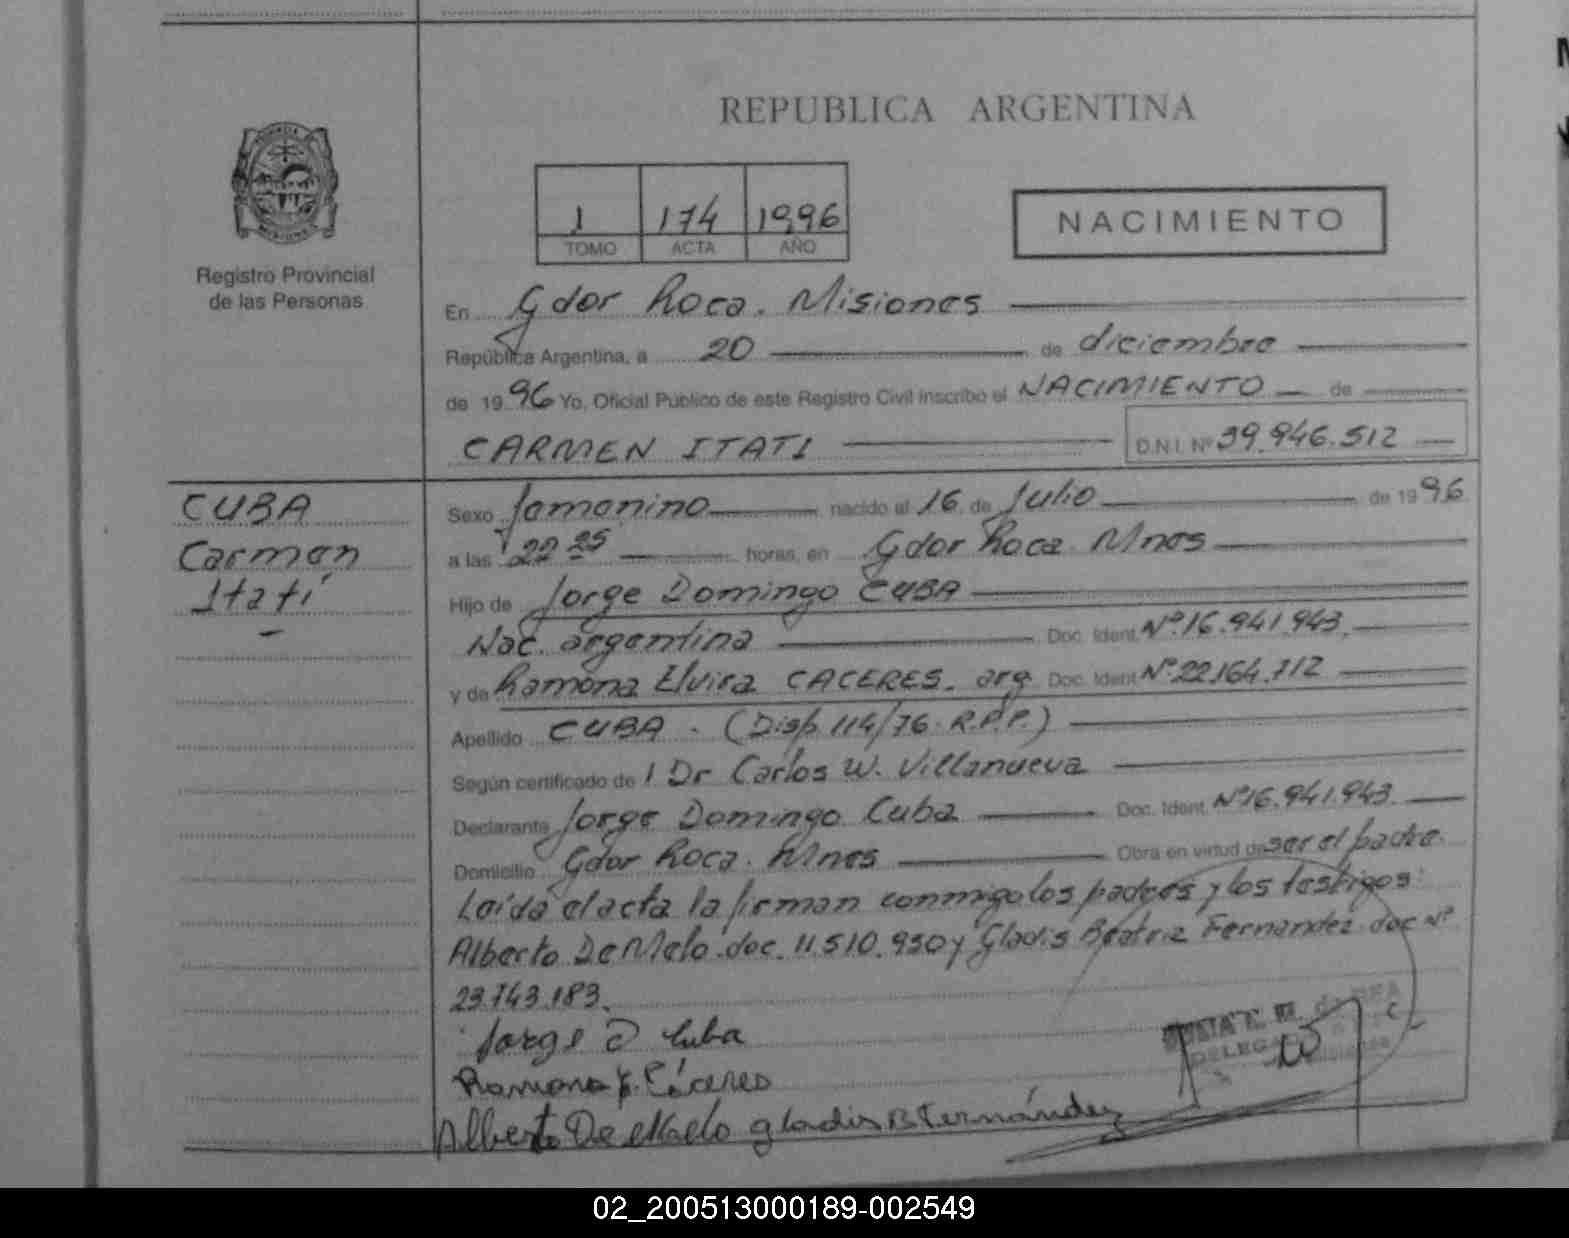 REPUBLICA ARGENTINA
1 174 1996
TOMO ACTA AÑO
NACIMIENTO
Registro Provincial
de las Personas
En Gdor Roca. Misiones
República Argentina, a 20 de diciembre
de 1996 Yo, Oficial Público de este Registro Civil inscribo el NACIMIENTO de
CARMEN ITATI D.N.I. Nº 39.946.512
CUBA
Carmen
Itatí
Sexo femenino nacido el 16 de Julio de 1996
a las 22 25 horas, en Gdor Roca. Mnes
Hijo de Jorge Domingo CUBA
Nac. argentina Doc. Ident. Nº.16.941.943.
y de Ramona Elvira CACERES. arg Doc. Ident Nº.22.164.712
Apellido CUBA. (Disp. 114/76. R.P.P.)
Según certificado de l Dr Carlos W. Villanueva
Declarante Jorge Domingo Cuba Doc. Ident. Nº16.941.943.
Domicilio Gdor Roca. Mnes Obra en virtud de ser el padre.
Leída el acta la firman conmigo los padres y los testigos:
Alberto De Melo. doc. 11.510.930 y Gladis Beatriz Fernandez. doc Nº
23.743.183.
Jorge D Cuba
Ramona E. Cáceres
Alberto De Melo gladis B Fernández
02_200513000189-002549